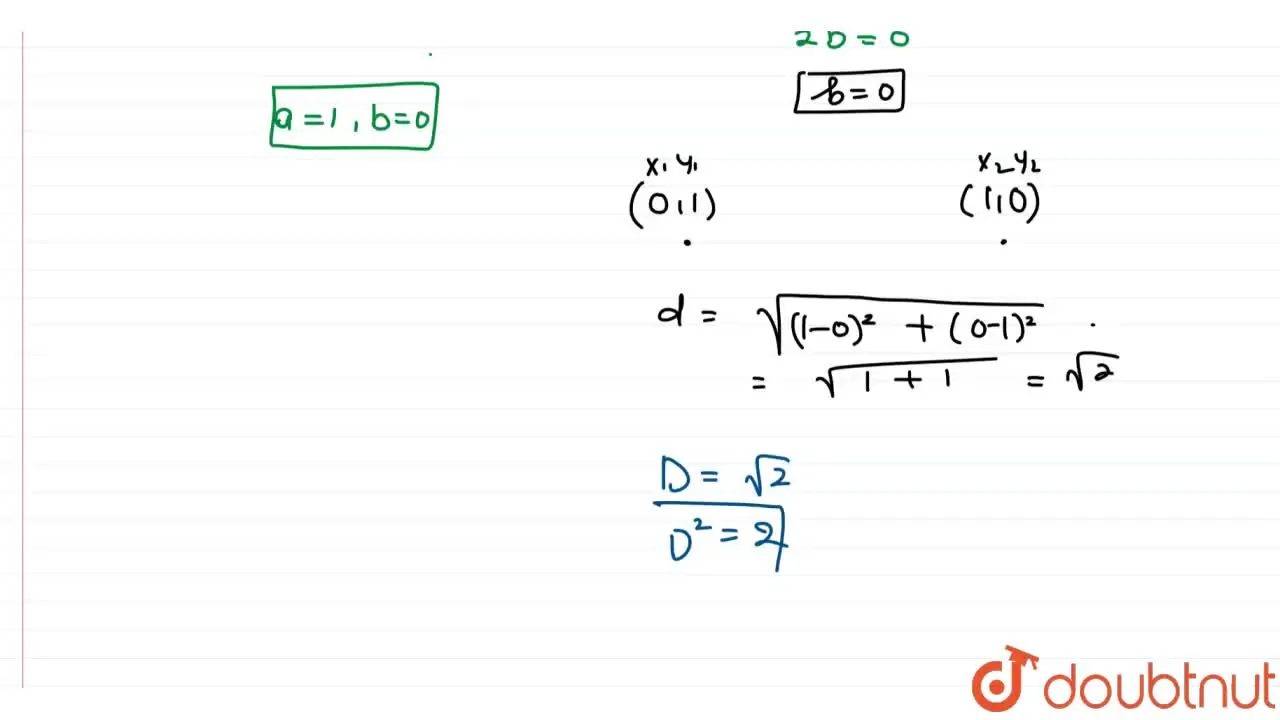 2b = 0
b = 0
a = 1, b = 0
x₁ y₁ x₂ y₂
(0,1) (1,0)
d = √((1-0)² + (0-1)²)
= √(1 + 1) = √2
D = √2
D² = 2
doubtnut